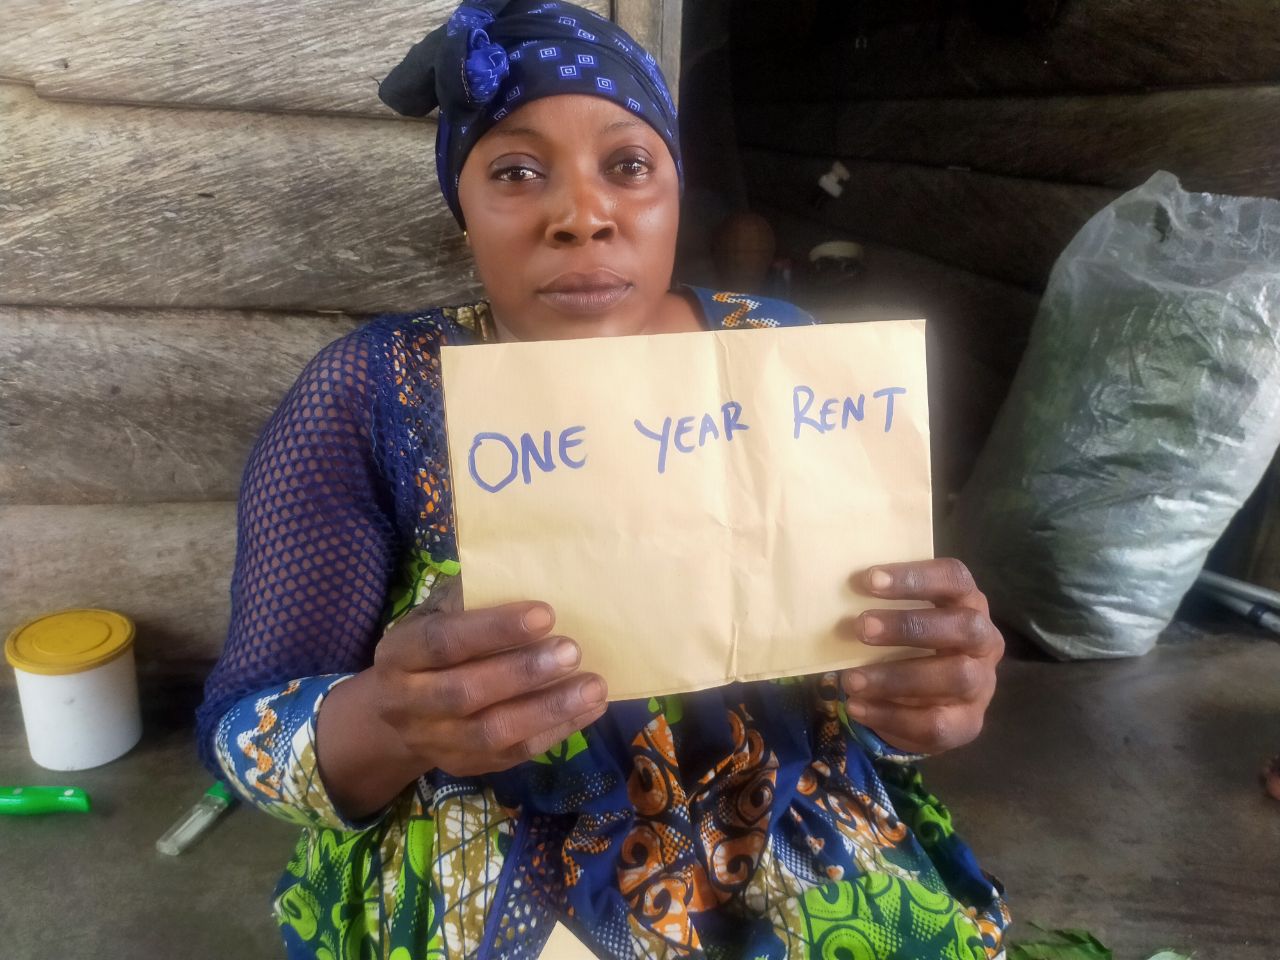 ONE YEAR RENT